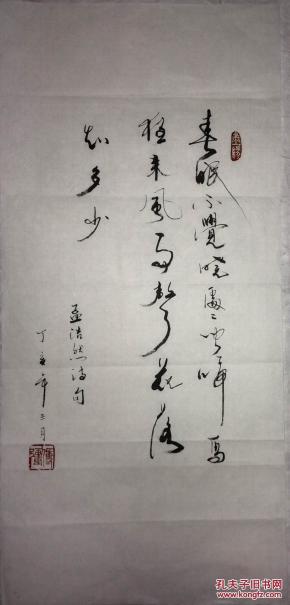 春眠不覺曉處〻聞啼鳥
夜来風雨聲花落
知多少
孟浩然诗句
丁亥年三月
孔夫子旧书网